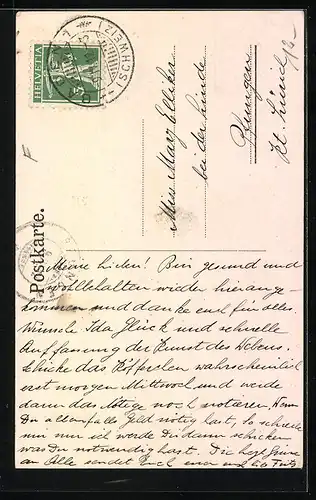 HELVETIA
(SCHWEIZ)
Postkarte.
Mary
bei der Linde
Kt. Zürich
Meine Lieben! Bin gesund und
wohlbehalten wieder hier ange-
kommen und danke euch für alles.
Wünsche Ida Glück und schnelle
Auffassung der Kunst des Webens.
Schicke das Köfferchen wahrscheinlich
erst morgen Mittwoch und werde
dann das Nötige noch notieren. Wenn
Du allenfalls Geld nötig hast, so schreibe
mir nur ich werde Dir dann schicken
was Du notwendig hast. Die herzl. Grüsse
an Alle sendet Euch euer